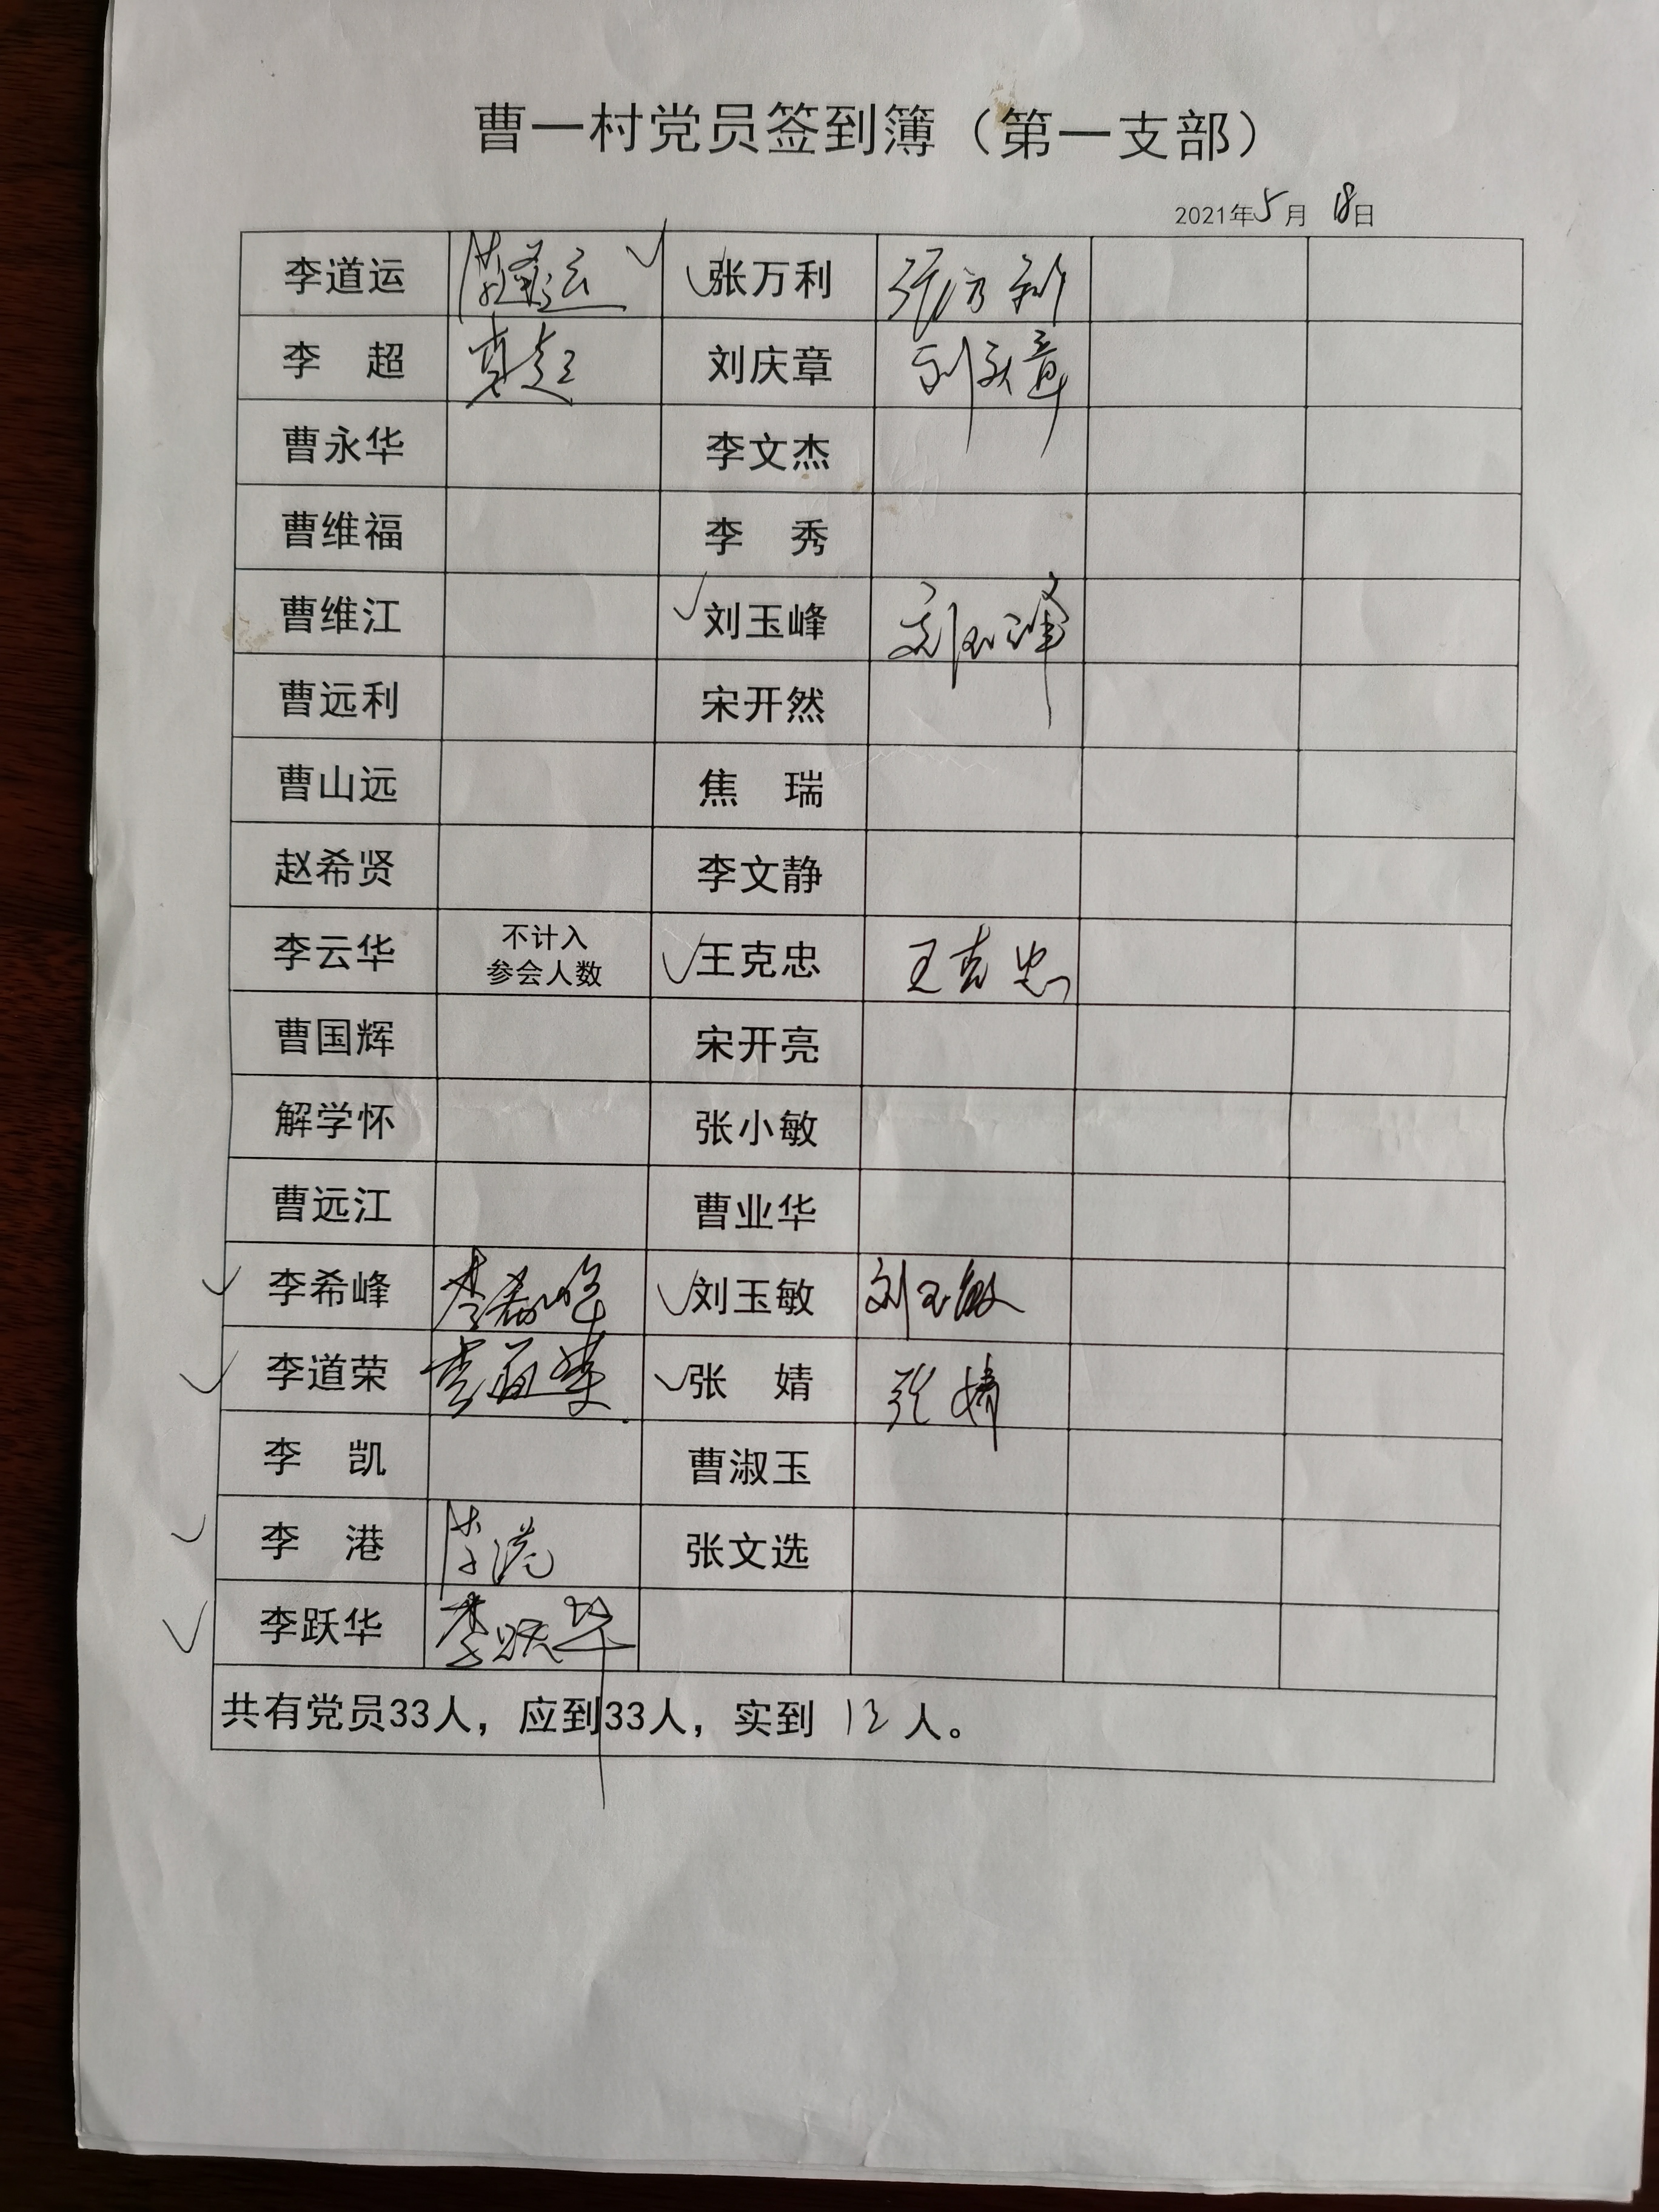 曹一村党员签到簿（第一支部）
2021年5月18日
李道运 李道运 张万利 张万利
李 超 李超 刘庆章 刘庆章
曹永华 李文杰
曹维福 李 秀
曹维江 刘玉峰 刘玉峰
曹远利 宋开然
曹山远 焦 瑞
赵希贤 李文静
李云华 不计入 参会人数 王克忠 王克忠
曹国辉 宋开亮
解学怀 张小敏
曹远江 曹业华
李希峰 李希峰 刘玉敏 刘玉敏
李道荣 李道荣 张 婧 张婧
李 凯 曹淑玉
李 港 李港 张文选
李跃华 李跃华
共有党员33人，应到33人，实到 12 人。